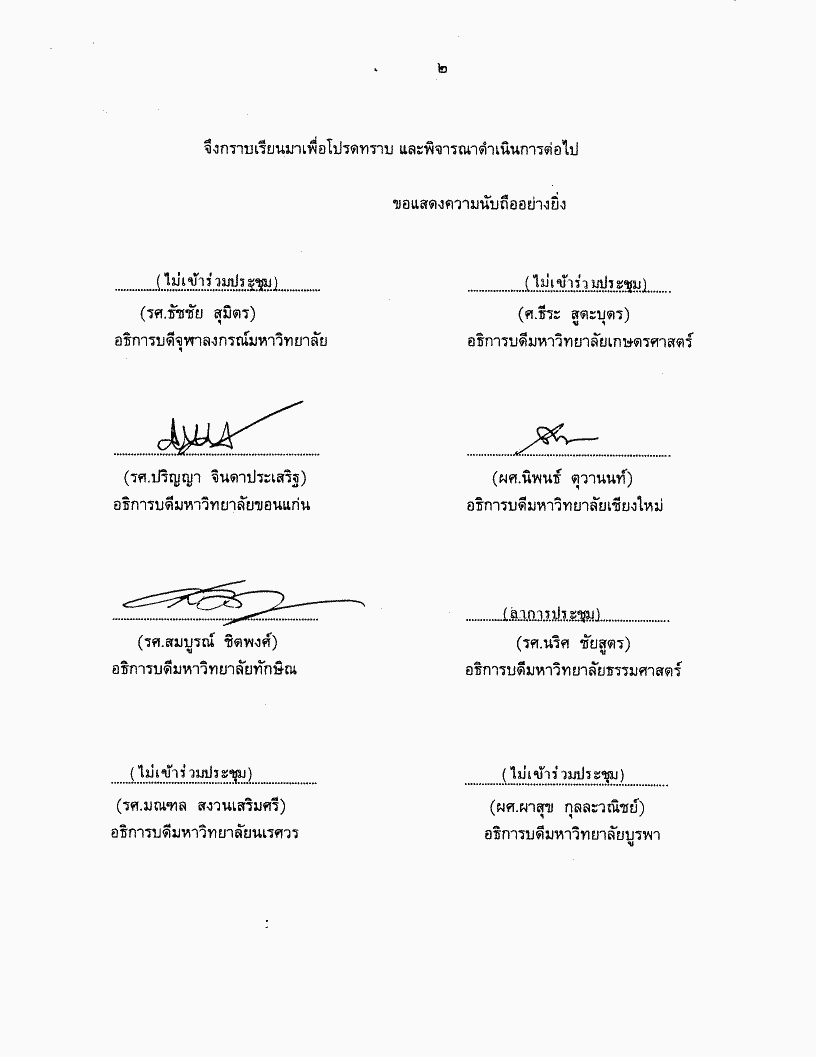 ๒
จึงกราบเรียนมาเพื่อโปรดทราบ และพิจารณาดำเนินการต่อไป
ขอแสดงความนับถืออย่างยิ่ง
(ไม่เข้าร่วมประชุม)
(รศ.ธัชชัย สุมิตร)
อธิการบดีจุฬาลงกรณ์มหาวิทยาลัย
(ไม่เข้าร่วมประชุม)
(ศ.ธีระ สูตะบุตร)
อธิการบดีมหาวิทยาลัยเกษตรศาสตร์
(รศ.ปริญญา จินดาประเสริฐ)
อธิการบดีมหาวิทยาลัยขอนแก่น
(ผศ.นิพนธ์ ตุวานนท์)
อธิการบดีมหาวิทยาลัยเชียงใหม่
(รศ.สมบูรณ์ ชิตพงศ์)
อธิการบดีมหาวิทยาลัยทักษิณ
(ลาการประชุม)
(รศ.นริศ ชัยสูตร)
อธิการบดีมหาวิทยาลัยธรรมศาสตร์
(ไม่เข้าร่วมประชุม)
(รศ.มณฑล สงวนเสริมศรี)
อธิการบดีมหาวิทยาลัยนเรศวร
(ไม่เข้าร่วมประชุม)
(ผศ.ผาสุข กุลละวณิชย์)
อธิการบดีมหาวิทยาลัยบูรพา